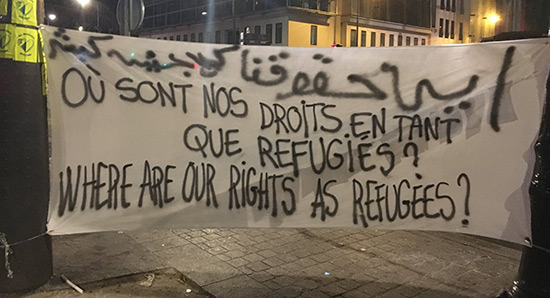 اين حقوقنا كلاجئين
OÙ SONT NOS DROITS EN TANT
QUE REFUGIÉS?
WHERE ARE OUR RIGHTS AS REFUGÉES?